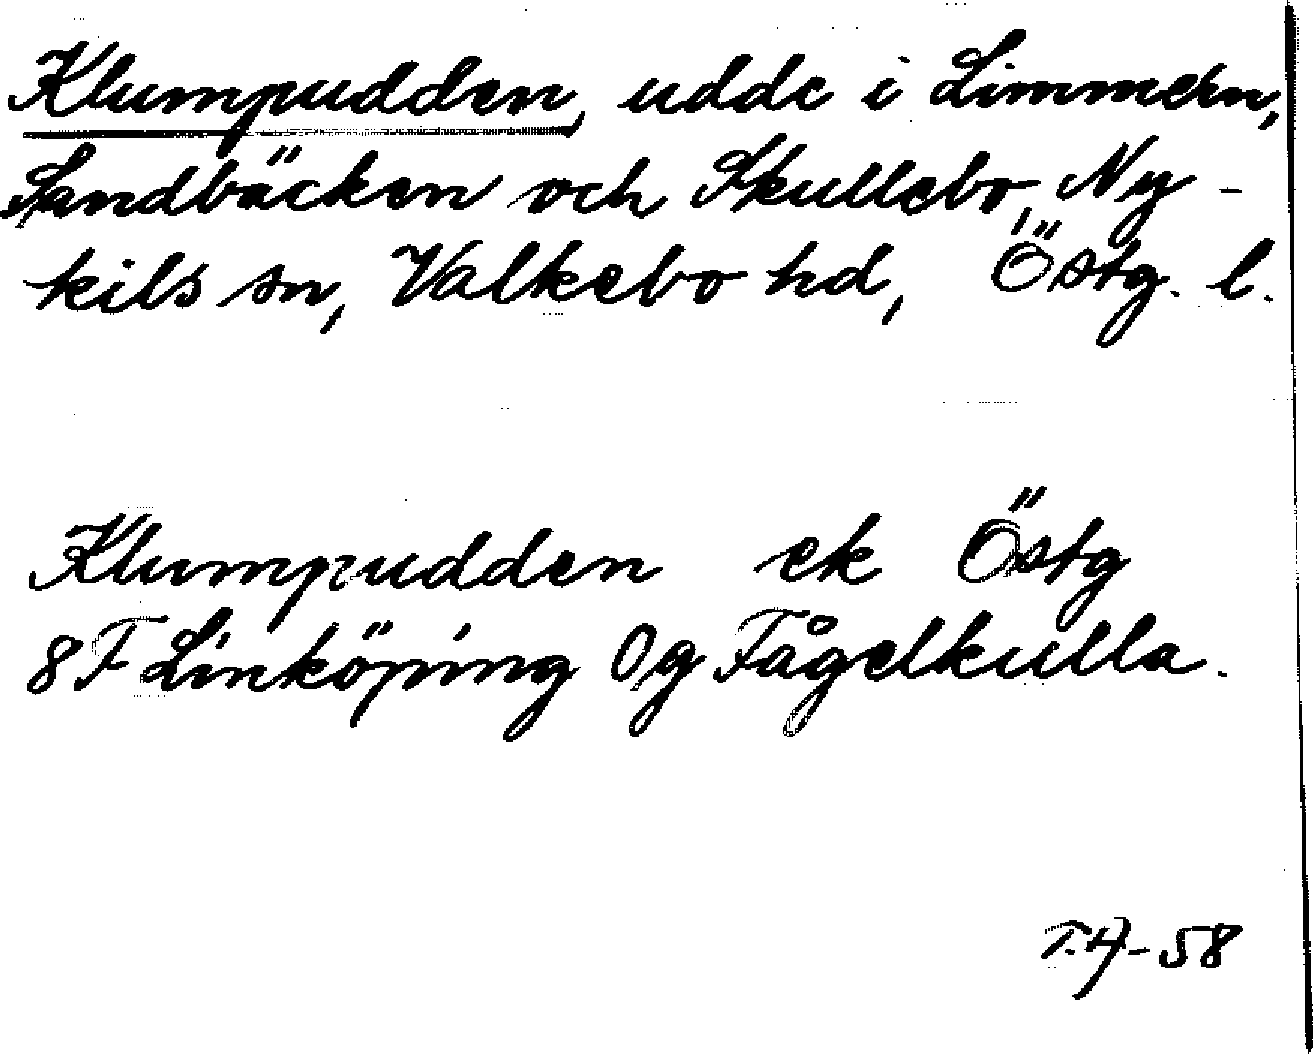 Klumpudden, udde i Limmern,
Sandbäcken och Skullebo, Ny-
kils sn, Valkebo hd, Östg. l.
Klumpudden ek Östg
8F Linköping Og Fågelkulla.